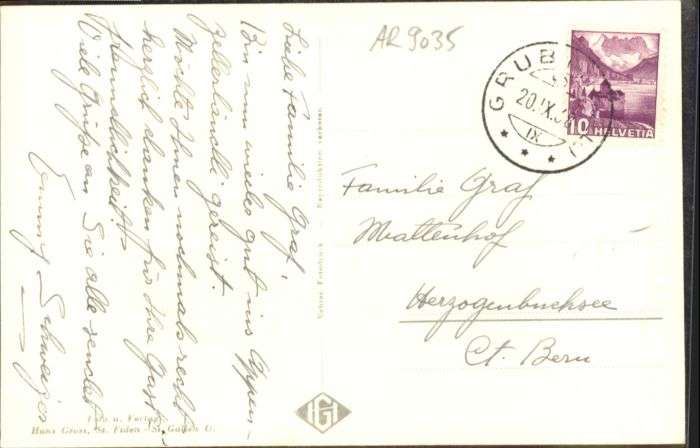 AR 9035
GRUB
20.IX.36
IX
10 HELVETIA
Liebe Familie Graf!
Bin nun wieder gut ins Appen-
zellerländli gereist.
Möchte Ihnen nochmals recht
herzlich danken für Ihre Gast-
freundlichkeit.
Viele Grüsse an Sie alle sendet
Emmy Schweizer
Familie Graf
Mattenhof
Herzogenbuchsee
Ct. Bern
Foto u. Verlag
Hans Gross, St. Fiden - St. Gallen O.